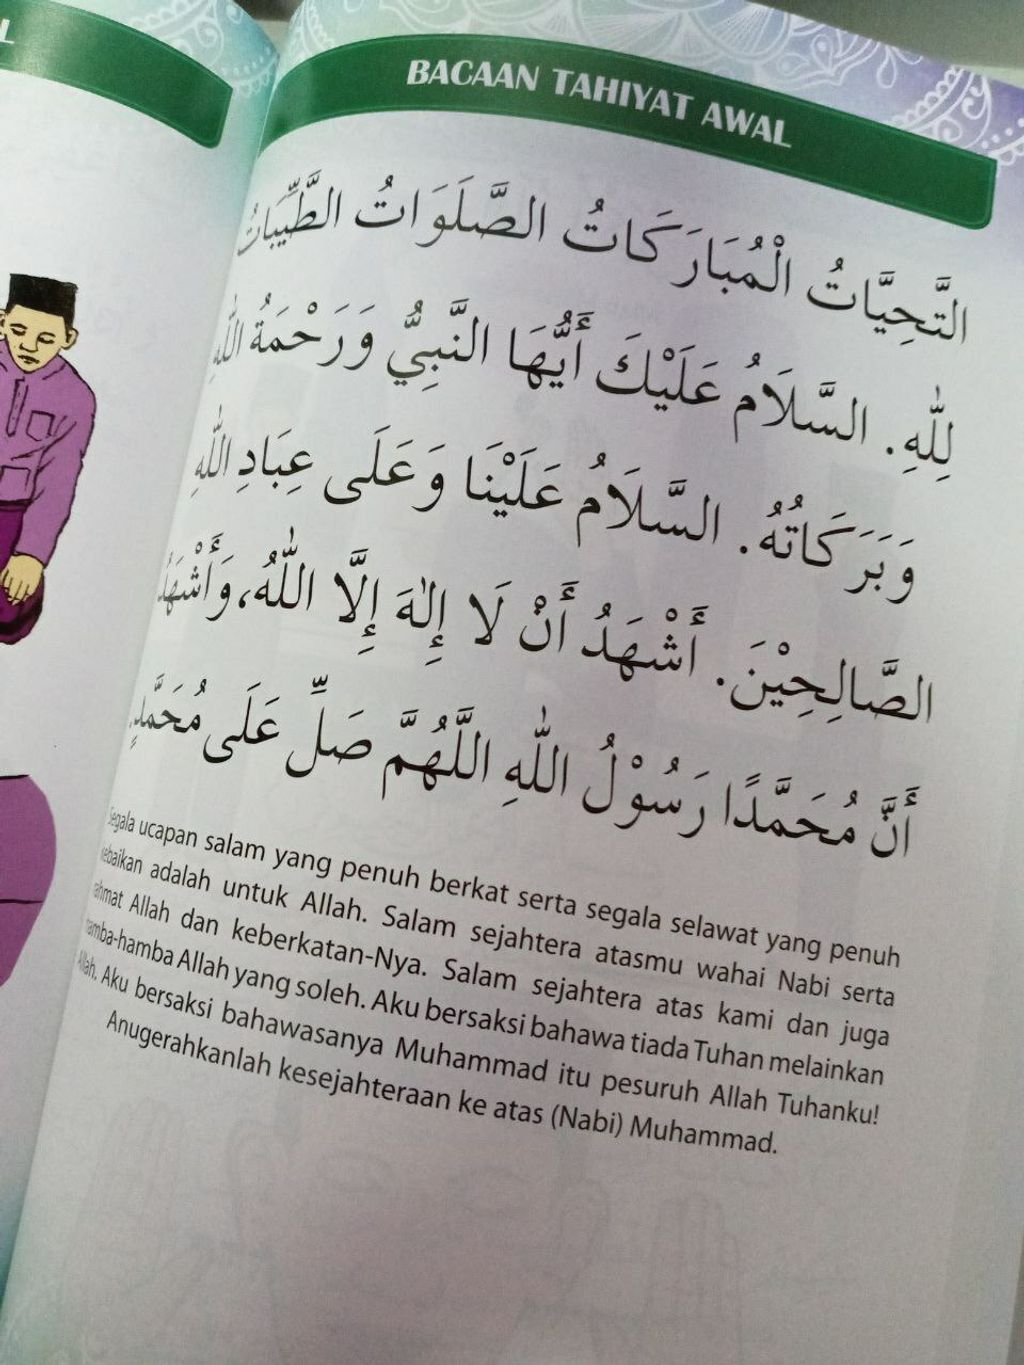 L
BACAAN TAHIYAT AWAL
التَّحِيَّاتُ الْمُبَارَكَاتُ الصَّلَوَاتُ الطَّيِّبَاتُ
لِلّٰهِ. السَّلَامُ عَلَيْكَ أَيُّهَا النَّبِيُّ وَرَحْمَةُ اللّٰهِ
وَبَرَكَاتُهُ. السَّلَامُ عَلَيْنَا وَعَلَى عِبَادِ اللّٰهِ
الصَّالِحِيْنَ. أَشْهَدُ أَنْ لَا إِلٰهَ إِلَّا اللّٰهُ، وَأَشْهَدُ
أَنَّ مُحَمَّدًا رَسُوْلُ اللّٰهِ اللَّهُمَّ صَلِّ عَلَى مُحَمَّدٍ.
Segala ucapan salam yang penuh berkat serta segala selawat yang penuh
kebaikan adalah untuk Allah. Salam sejahtera atasmu wahai Nabi serta
rahmat Allah dan keberkatan-Nya. Salam sejahtera atas kami dan juga
hamba-hamba Allah yang soleh. Aku bersaksi bahawa tiada Tuhan melainkan
Allah. Aku bersaksi bahawasanya Muhammad itu pesuruh Allah Tuhanku!
Anugerahkanlah kesejahteraan ke atas (Nabi) Muhammad.